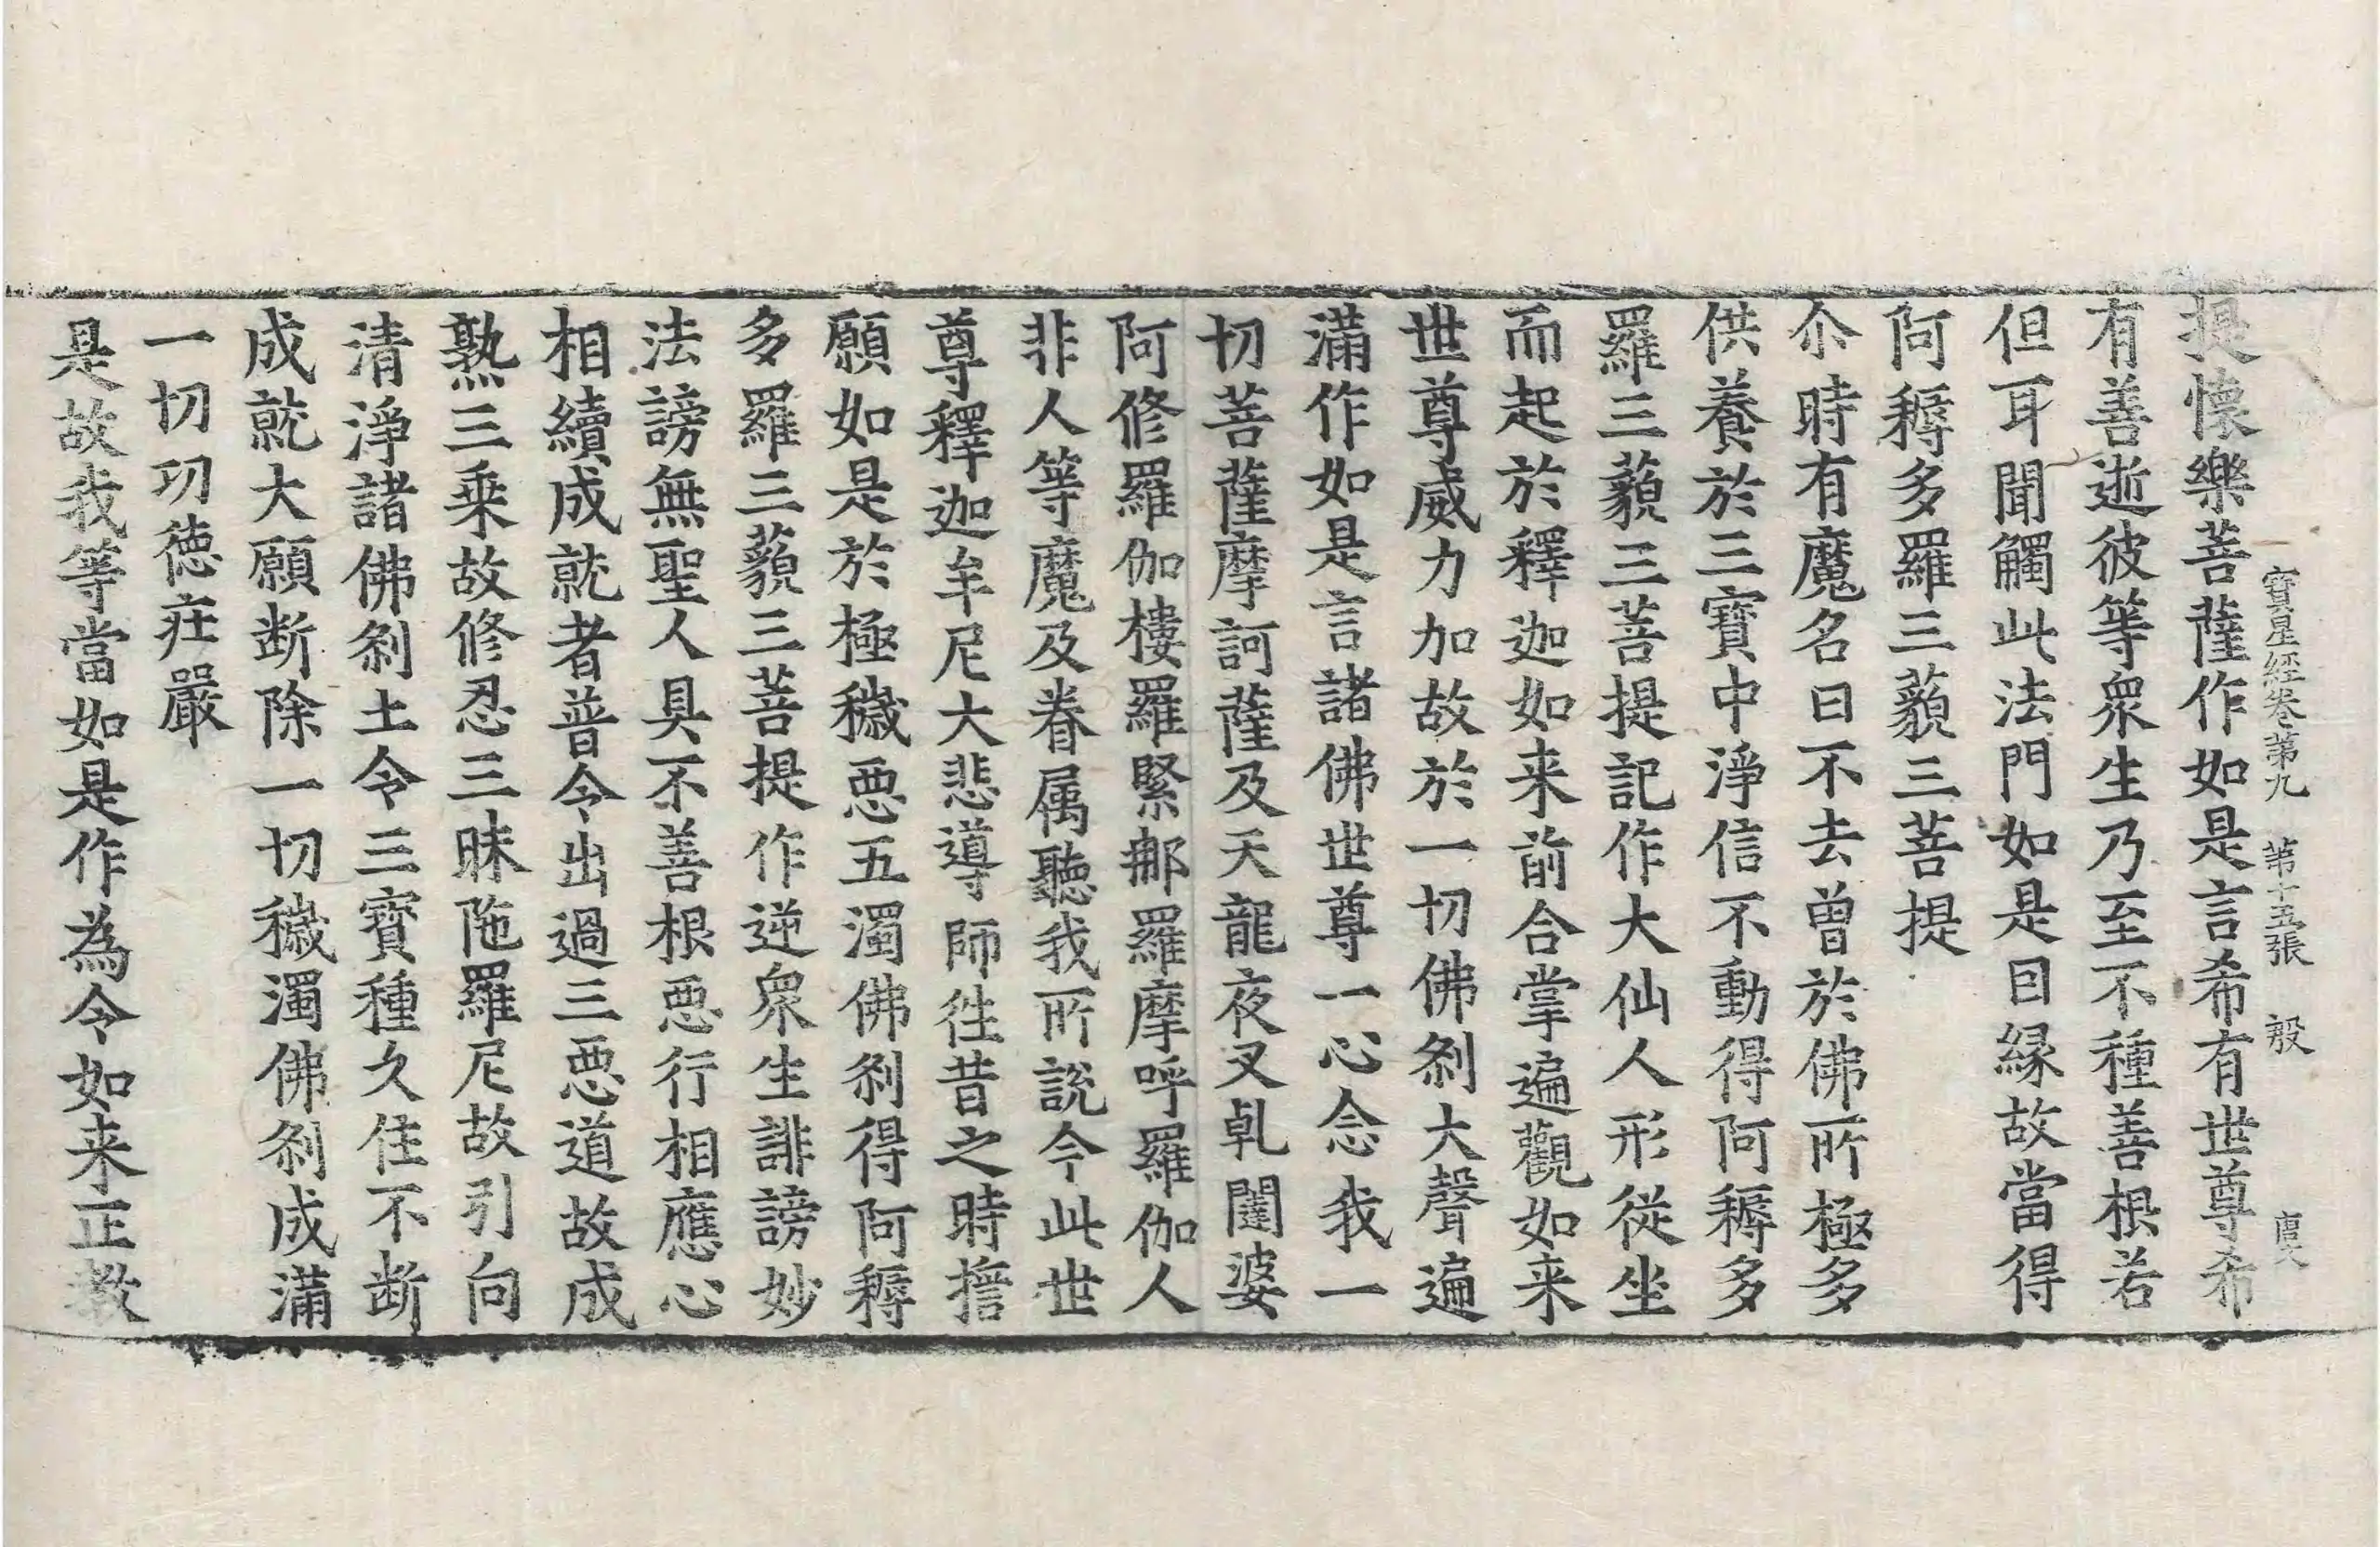 寶星經卷第九 第十五張 般
提懷樂菩薩作如是言希有世尊希
有善逝彼等衆生乃至不種善根若
但耳聞觸此法門如是因緣故當得
阿耨多羅三藐三菩提
尒時有魔名曰不去曾於佛所極多
供養於三寶中淨信不動得阿耨多
羅三藐三菩提記作大仙人形從坐
而起於釋迦如来前合掌遍觀如来
世尊威力加故於一切佛剎大聲遍
滿作如是言諸佛世尊一心念我一
切菩薩摩訶薩及天龍夜叉乹闥婆
阿修羅伽樓羅緊那羅摩呼羅伽人
非人等魔及眷属聽我所說今此世
尊釋迦牟尼大悲導師徃昔之時擔
願如是於極穢惡五濁佛剎得阿耨
多羅三藐三菩提作逆衆生誹謗妙
法謗無聖人具不善根惡行相應心
相續成就者普令出過三惡道故成
熟三乗故修忍三昧陁羅尼故引向
清淨諸佛剎土令三寶種久住不断
成就大願断除一切穢濁佛剎成滿
一切功德莊嚴
是故我等當如是作為令如来正教